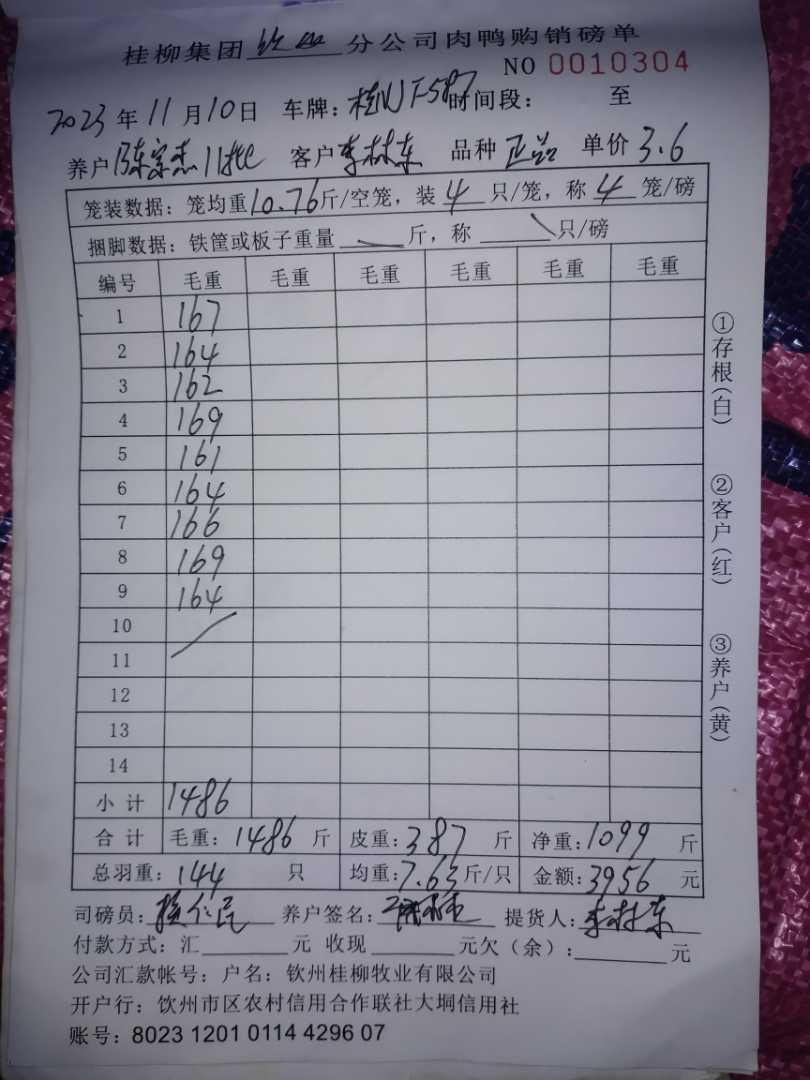 桂柳集团钦州分公司肉鸭购销磅单
NO 0010304
2023年11月10日 车牌：时间段： 至
养户陈宗杰11批 客户李林东 品种正品 单价3.6
笼装数据：笼均重10.76斤/空笼，装4只/笼，称4笼/磅
捆脚数据：铁筐或板子重量 斤，称 只/磅
编号 毛重 毛重 毛重 毛重 毛重 毛重
1 167
2 164
3 162
4 169
5 161
6 164
7 166
8 169
9 164
10
11
12
13
14
小计 1486
合计 毛重：1486斤 皮重：387斤 净重：1099斤
总羽重：144只 均重：7.63斤/只 金额：3956元
司磅员： 养户签名： 提货人：李林东
付款方式：汇 元 收现 元欠（余）： 元
公司汇款帐号：户名：钦州桂柳牧业有限公司
开户行：钦州市区农村信用合作联社大垌信用社
账号：8023 1201 0114 4296 07
①存根(白)
②客户(红)
③养户(黄)